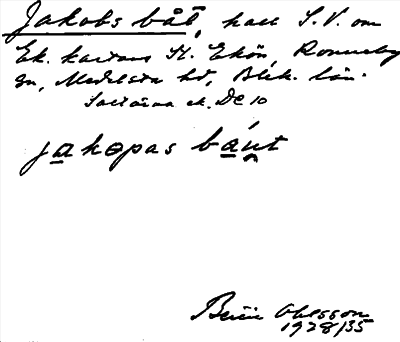 Jakobs båt, hall S.V. om
Ek. kartans St. Ekön, Ronneby
sn, Medelsta hd, Blek. län.
Saltärna ek. DC 10
jakopas bánt
Berit Ohlsson
1928/35